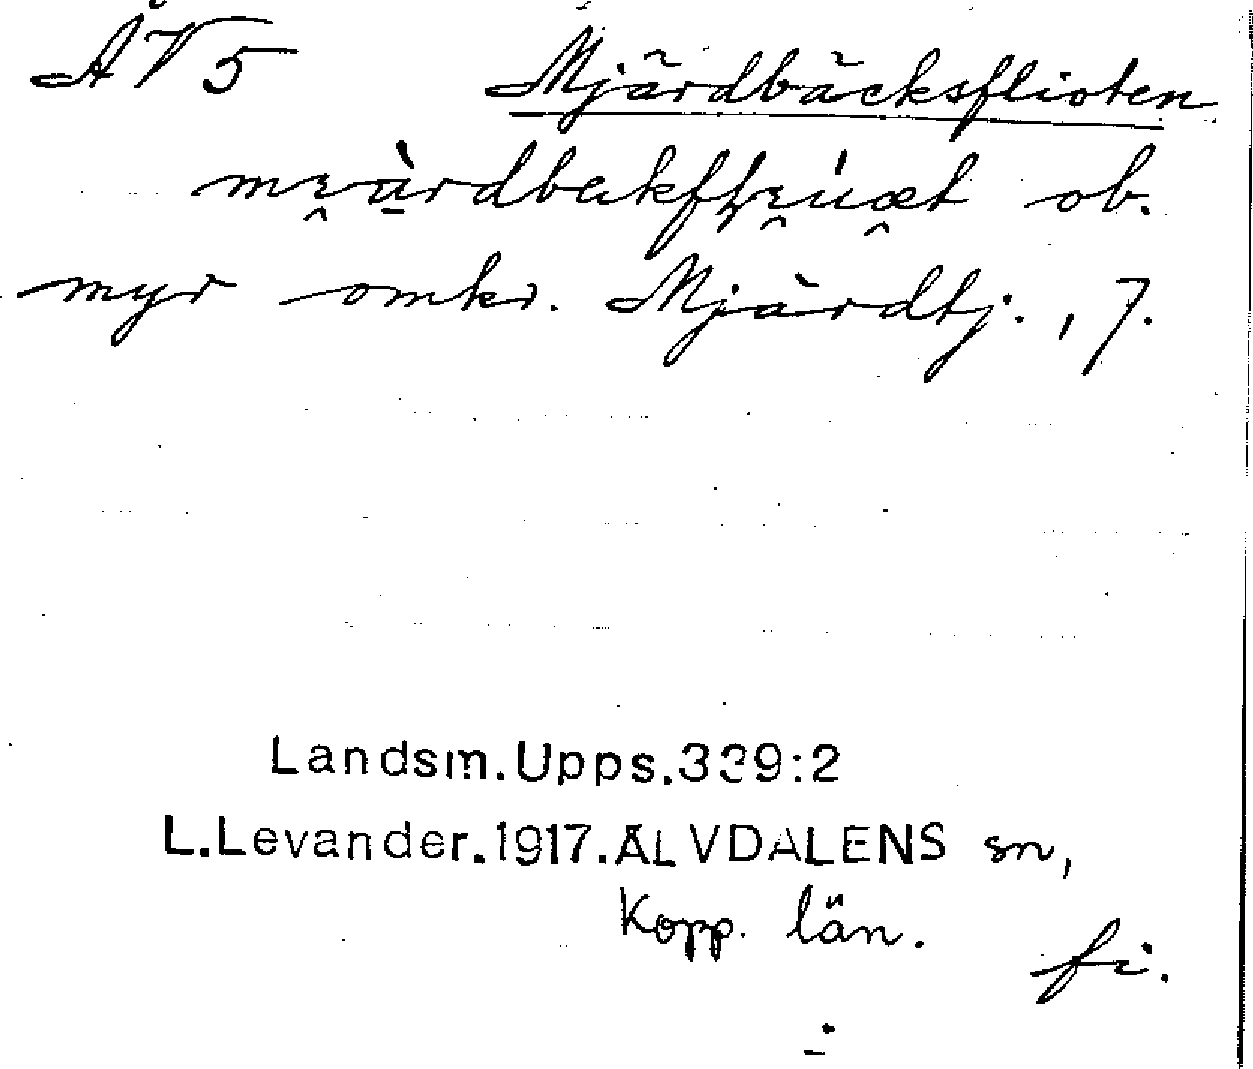 ÅV5 Mjärdbäcksflioten
ob.
myr omkr. Mjärdtj., 7.
Landsm.Upps.339:2
L.Levander.1917.ÄLVDALENS sn,
Kopp. län.
fi.